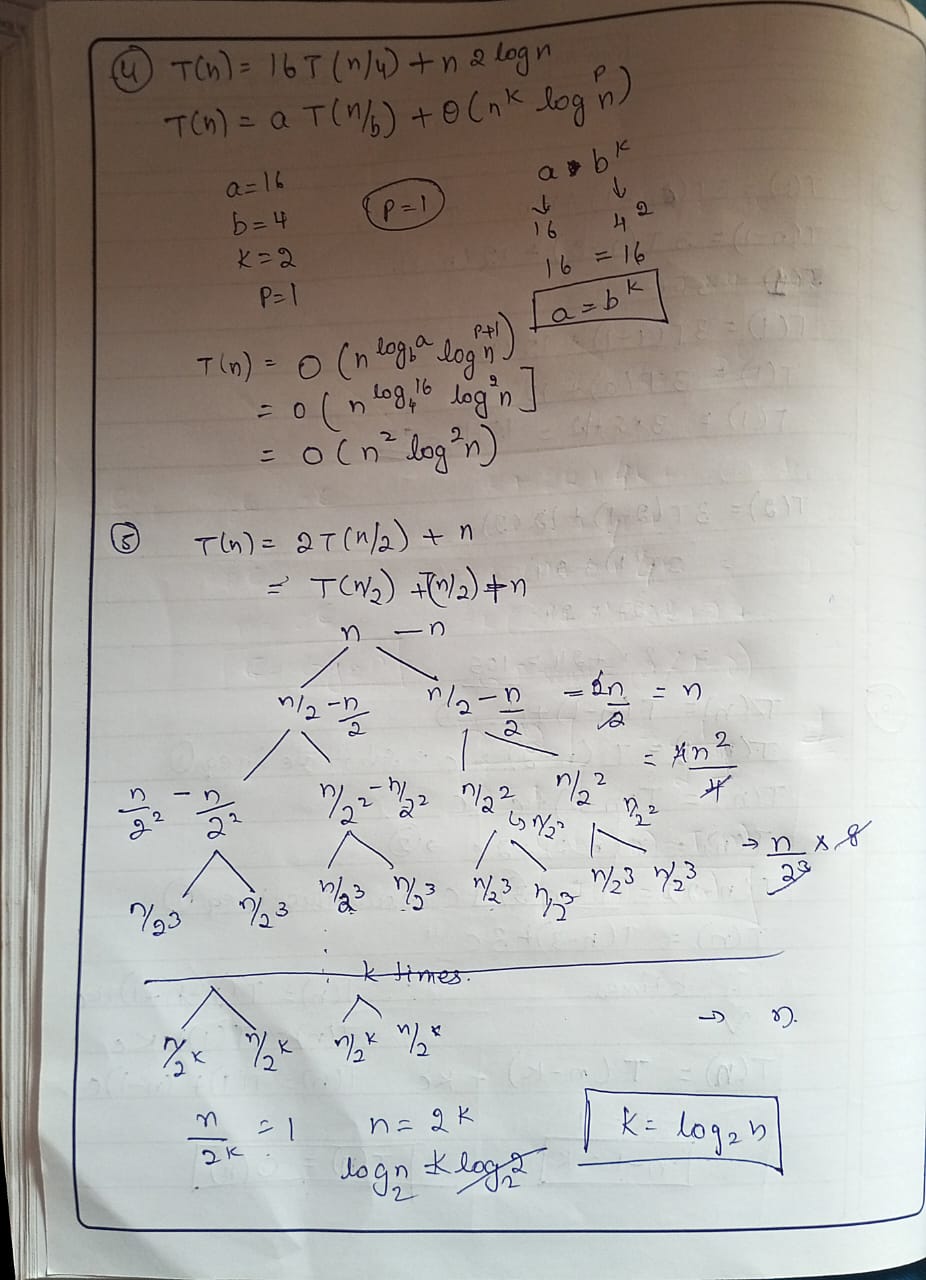 ④ T(n) = 16T(n/4) + n 2 log n
T(n) = a T(n/b) + θ(n^k log^p n)
a = 16
b = 4
k = 2
P = 1
P = 1
a b^k
↓ ↓
16 4^2
16 = 16
a = b^k
T(n) = O(n^log_b a log^p+1 n)
= O(n^log_4 16 log^2 n]
= O(n^2 log^2 n)
⑤ T(n) = 2T(n/2) + n
= T(n/2) + T(n/2) + n
n — n
n/2 - n/2 n/2 - n/2 = 2n/2 = n
n/2^2 - n/2^2 n/2^2 - n/2^2 n/2^2 n/2^2 = 4n^2/4
↳ n/2^2 n/2^2
n/2^3 n/2^3 n/2^3 n/2^3 n/2^3 n/2^3 n/2^3 n/2^3 → n/2^3 × 8
k times.
n/2^k n/2^k n/2^k n/2^k → n.
n/2^k = 1 n = 2^k k = log_2 n
log_2 n k log_2 2